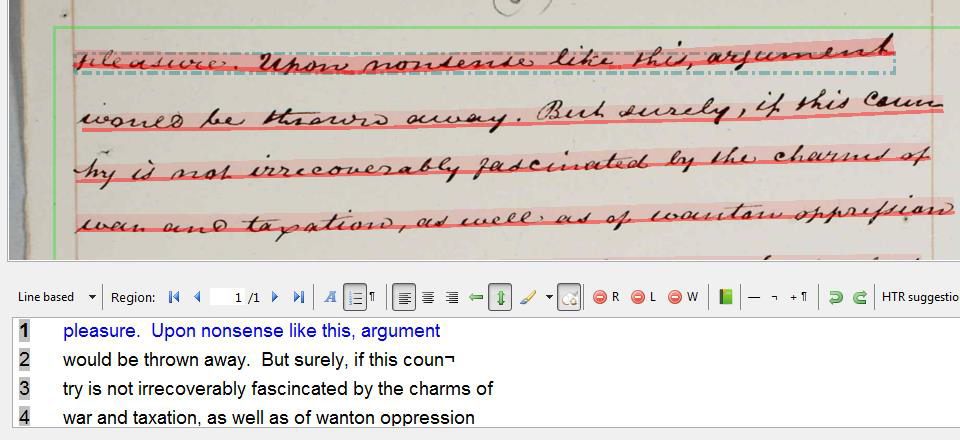 pleasure. Upon nonsense like this, argument
would be thrown away. But surely, if this coun
try is not irrecoverably fascinated by the charms of
war and taxation, as well as of wanton oppression
Line based Region: 1 /1 A ¶ R L W — ¬ +¶ HTR suggestio
1 pleasure. Upon nonsense like this, argument
2 would be thrown away. But surely, if this coun¬
3 try is not irrecoverably fascincated by the charms of
4 war and taxation, as well as of wanton oppression